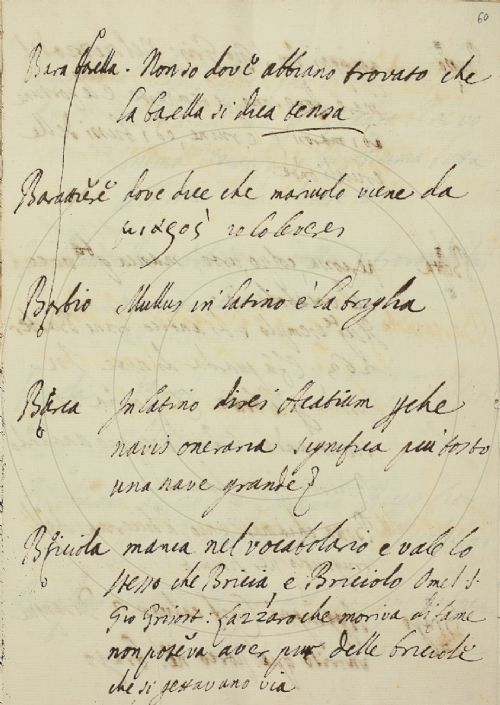 60
Barabaella. Non so dove abbiano trovato che
la baella si dica tensa
Barattiere dove dice che mariuolo viene da
μιαρος io lo leverei
Barbio Mullus in latino è la triglia
Barca In latino direi Acatium pche
navis oneraria significa più tosto
una nave grande
Briciola manca nel vocabolario e vale lo
stesso che Bricia e Briciolo Omel. S.
Gio Grisost: Lazzaro che moriva di fame
non poteva aver pur delle briciole
che si gettavano via